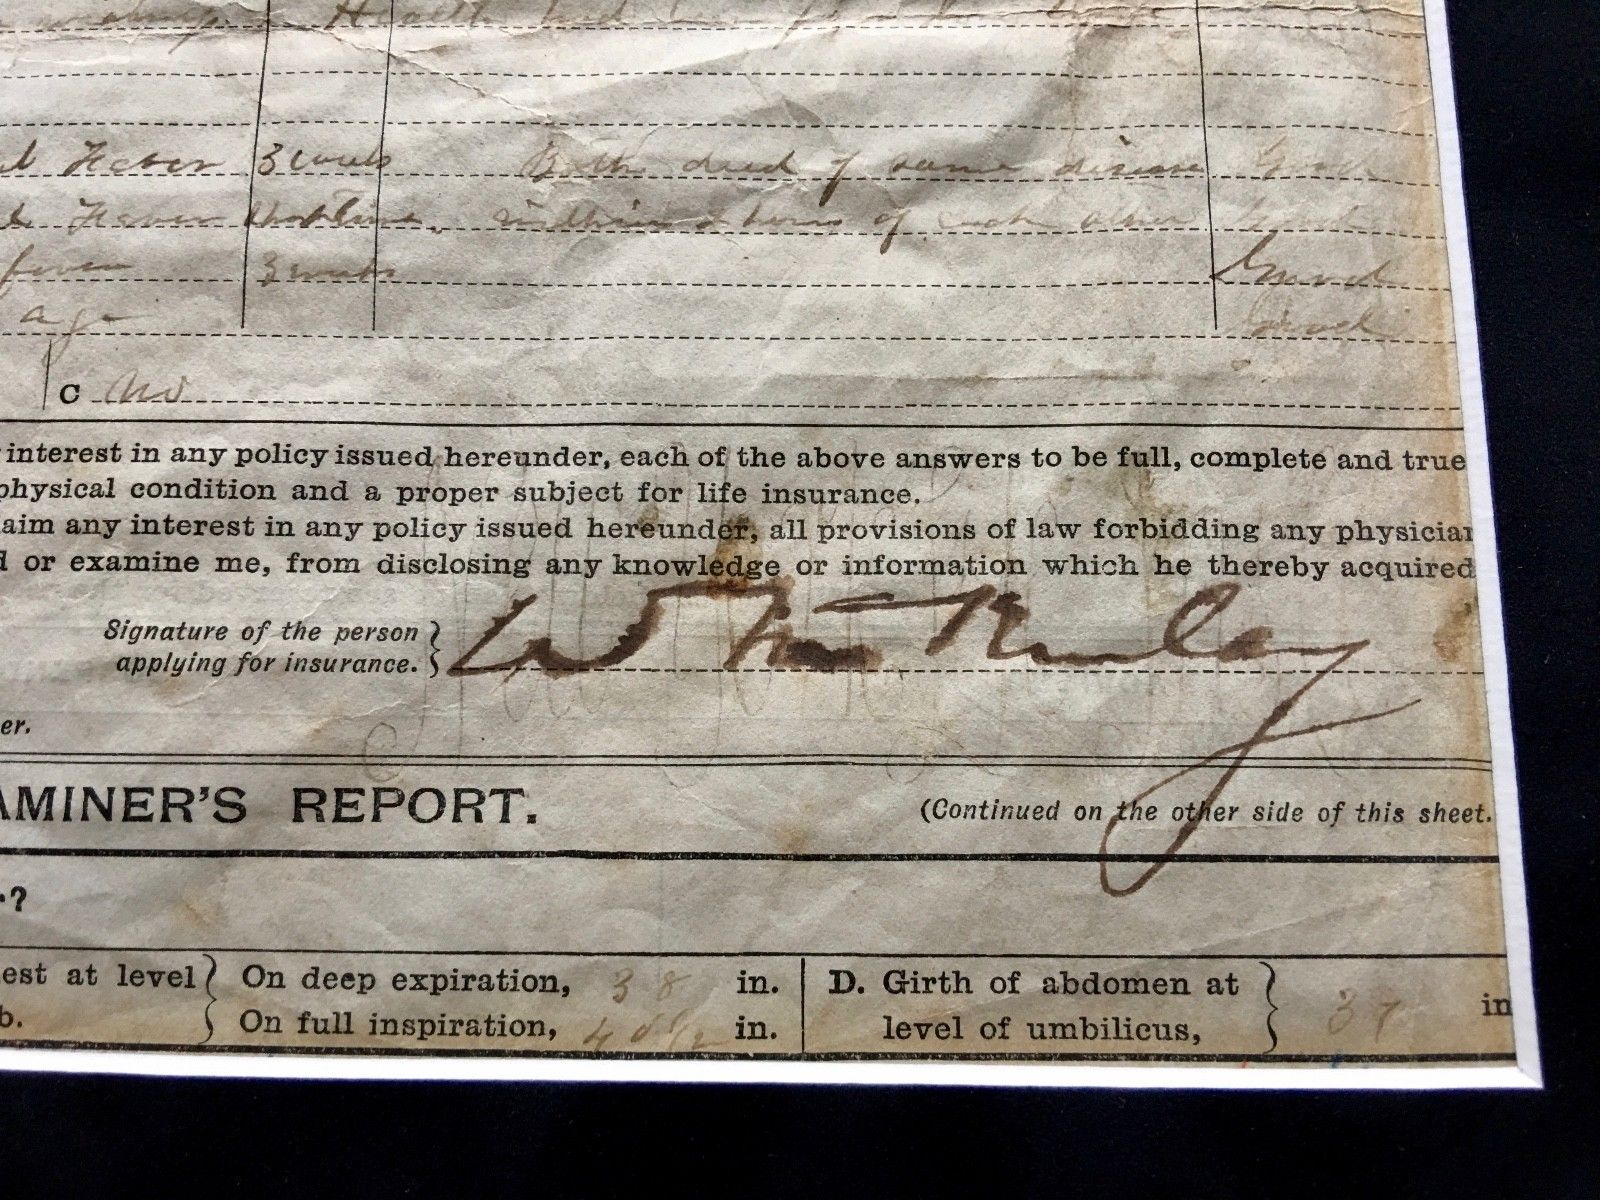 Health had
Fever 3 weeks Both died of same disease Good
Fever Short time. within 2 hours of each other Good
fever 3 weeks Good
age Good
C no
interest in any policy issued hereunder, each of the above answers to be full, complete and true
physical condition and a proper subject for life insurance.
laim any interest in any policy issued hereunder, all provisions of law forbidding any physician
d or examine me, from disclosing any knowledge or information which he thereby acquired
Signature of the person applying for insurance. } W McKinley
er.
AMINER'S REPORT. (Continued on the other side of this sheet.
.?
est at level } On deep expiration, 38 in. D. Girth of abdomen at } 37 in
b. On full inspiration, 40 1/2 in. level of umbilicus,